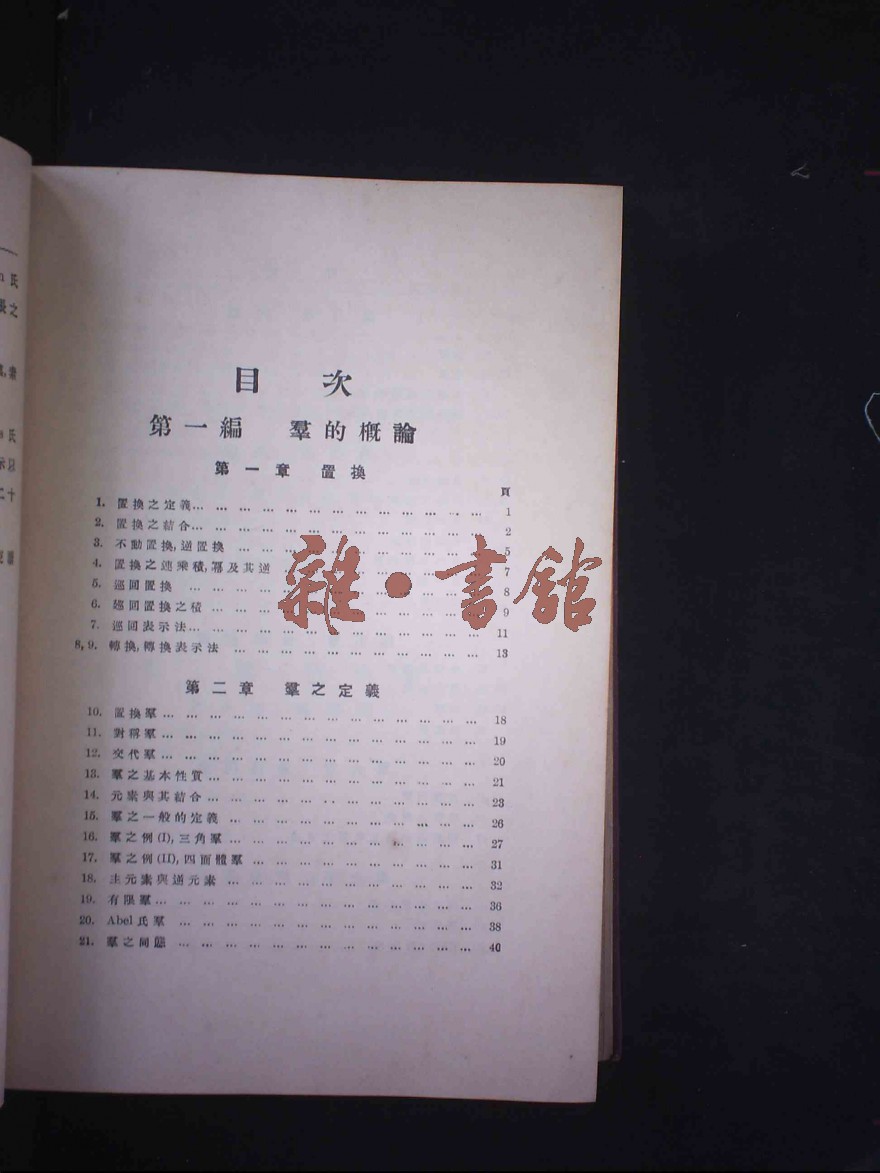 目 次
第一編 羣的概論
第一章 置換
頁
1. 置換之定義 1
2. 置換之結合 2
3. 不動置換,逆置換 5
4. 置換之連乘積,冪及其逆 7
5. 巡回置換 8
6. 巡回置換之積 9
7. 巡回表示法 11
8,9. 轉換,轉換表示法 13
第二章 羣之定義
10. 置換羣 18
11. 對稱羣 19
12. 交代羣 20
13. 羣之基本性質 21
14. 元素與其結合 23
15. 羣之一般的定義 26
16. 羣之例(I),三角羣 27
17. 羣之例(II),四面體羣 31
18. 主元素與逆元素 32
19. 有限羣 36
20. Abel氏羣 38
21. 羣之同態 40
雜·書館